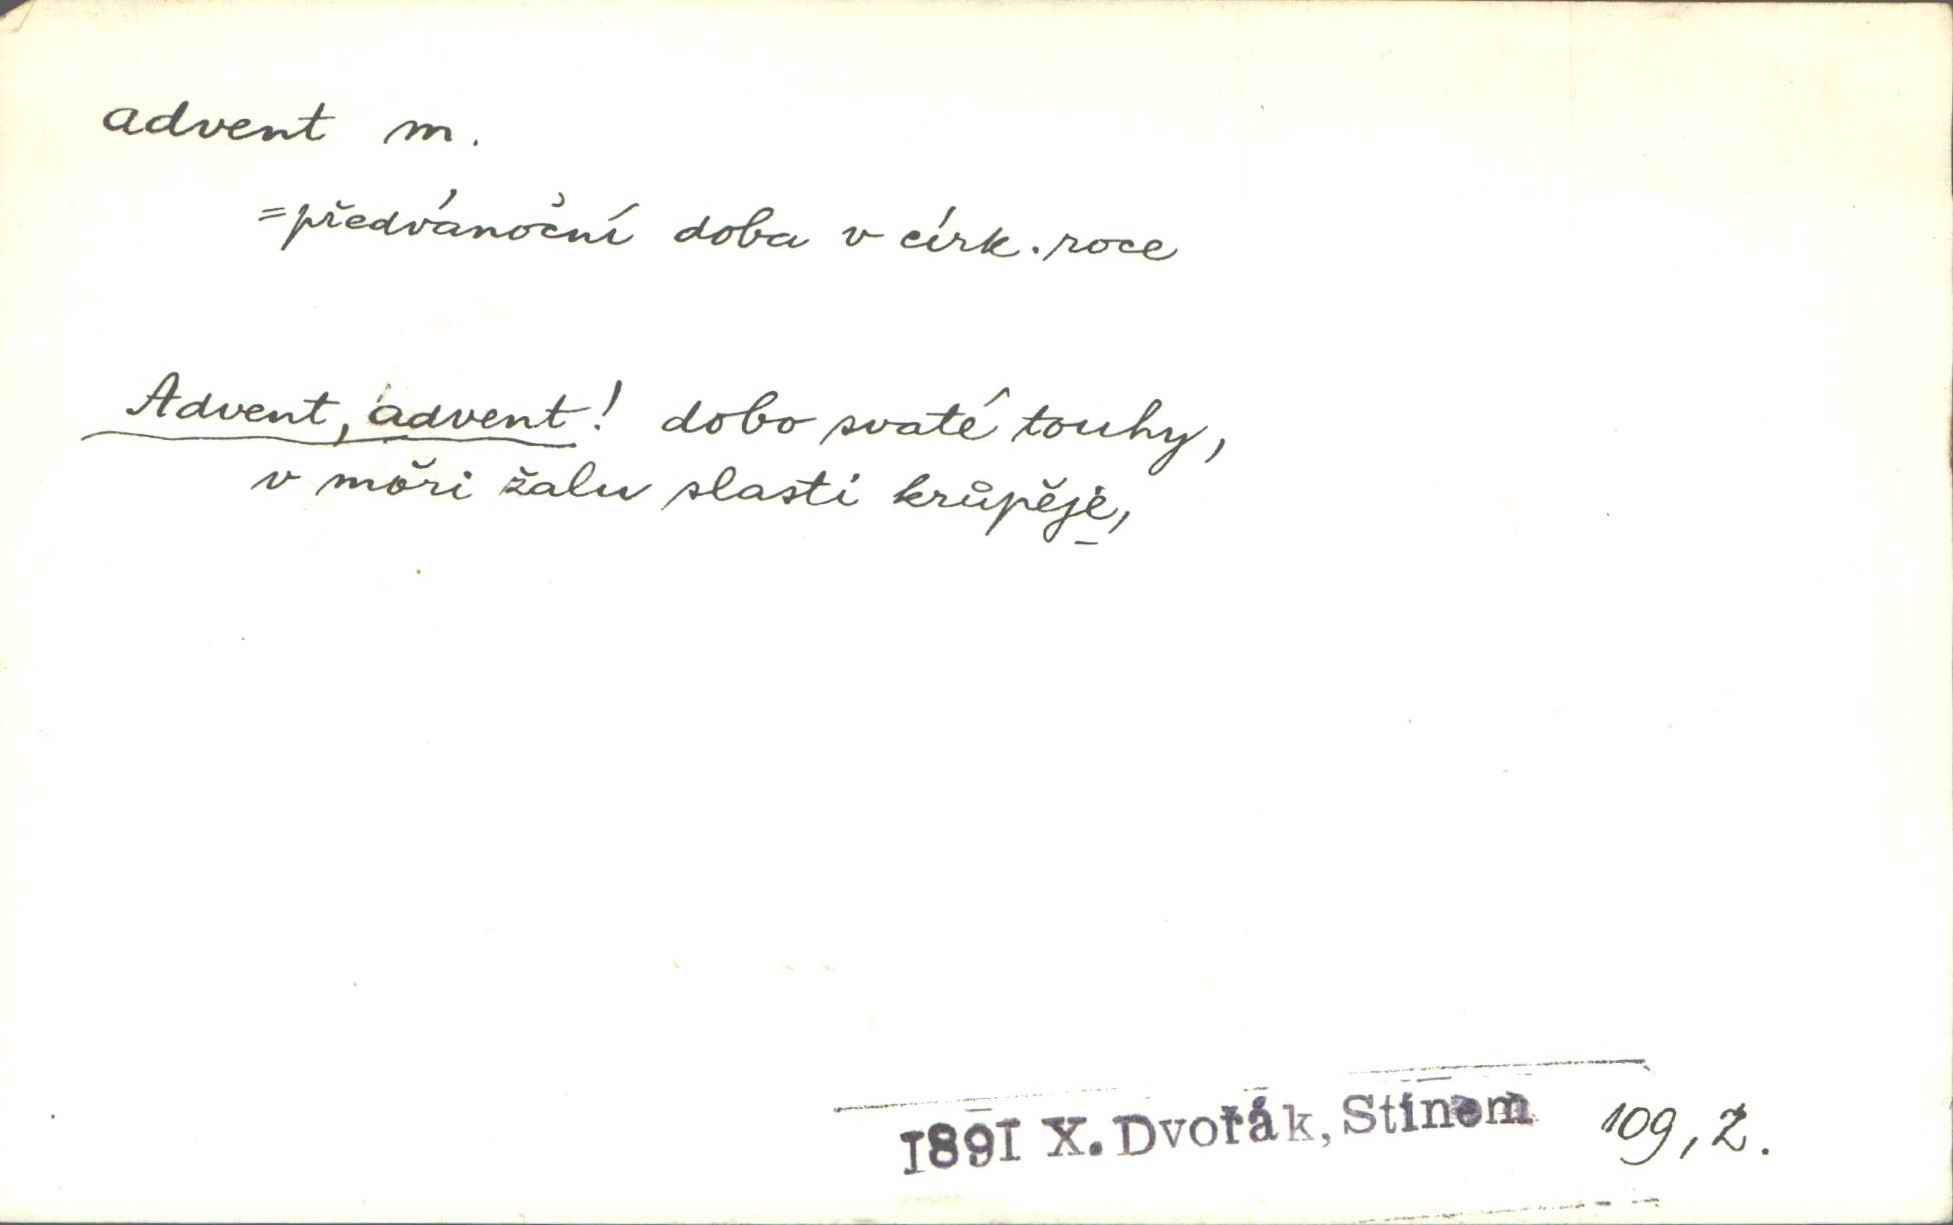 advent m.
=předvánoční doba v círk. roce
Advent, advent! dobo svaté touhy,
v moři žalu slasti krůpěje,
1891 X. Dvořák, Stínem 109, 2.